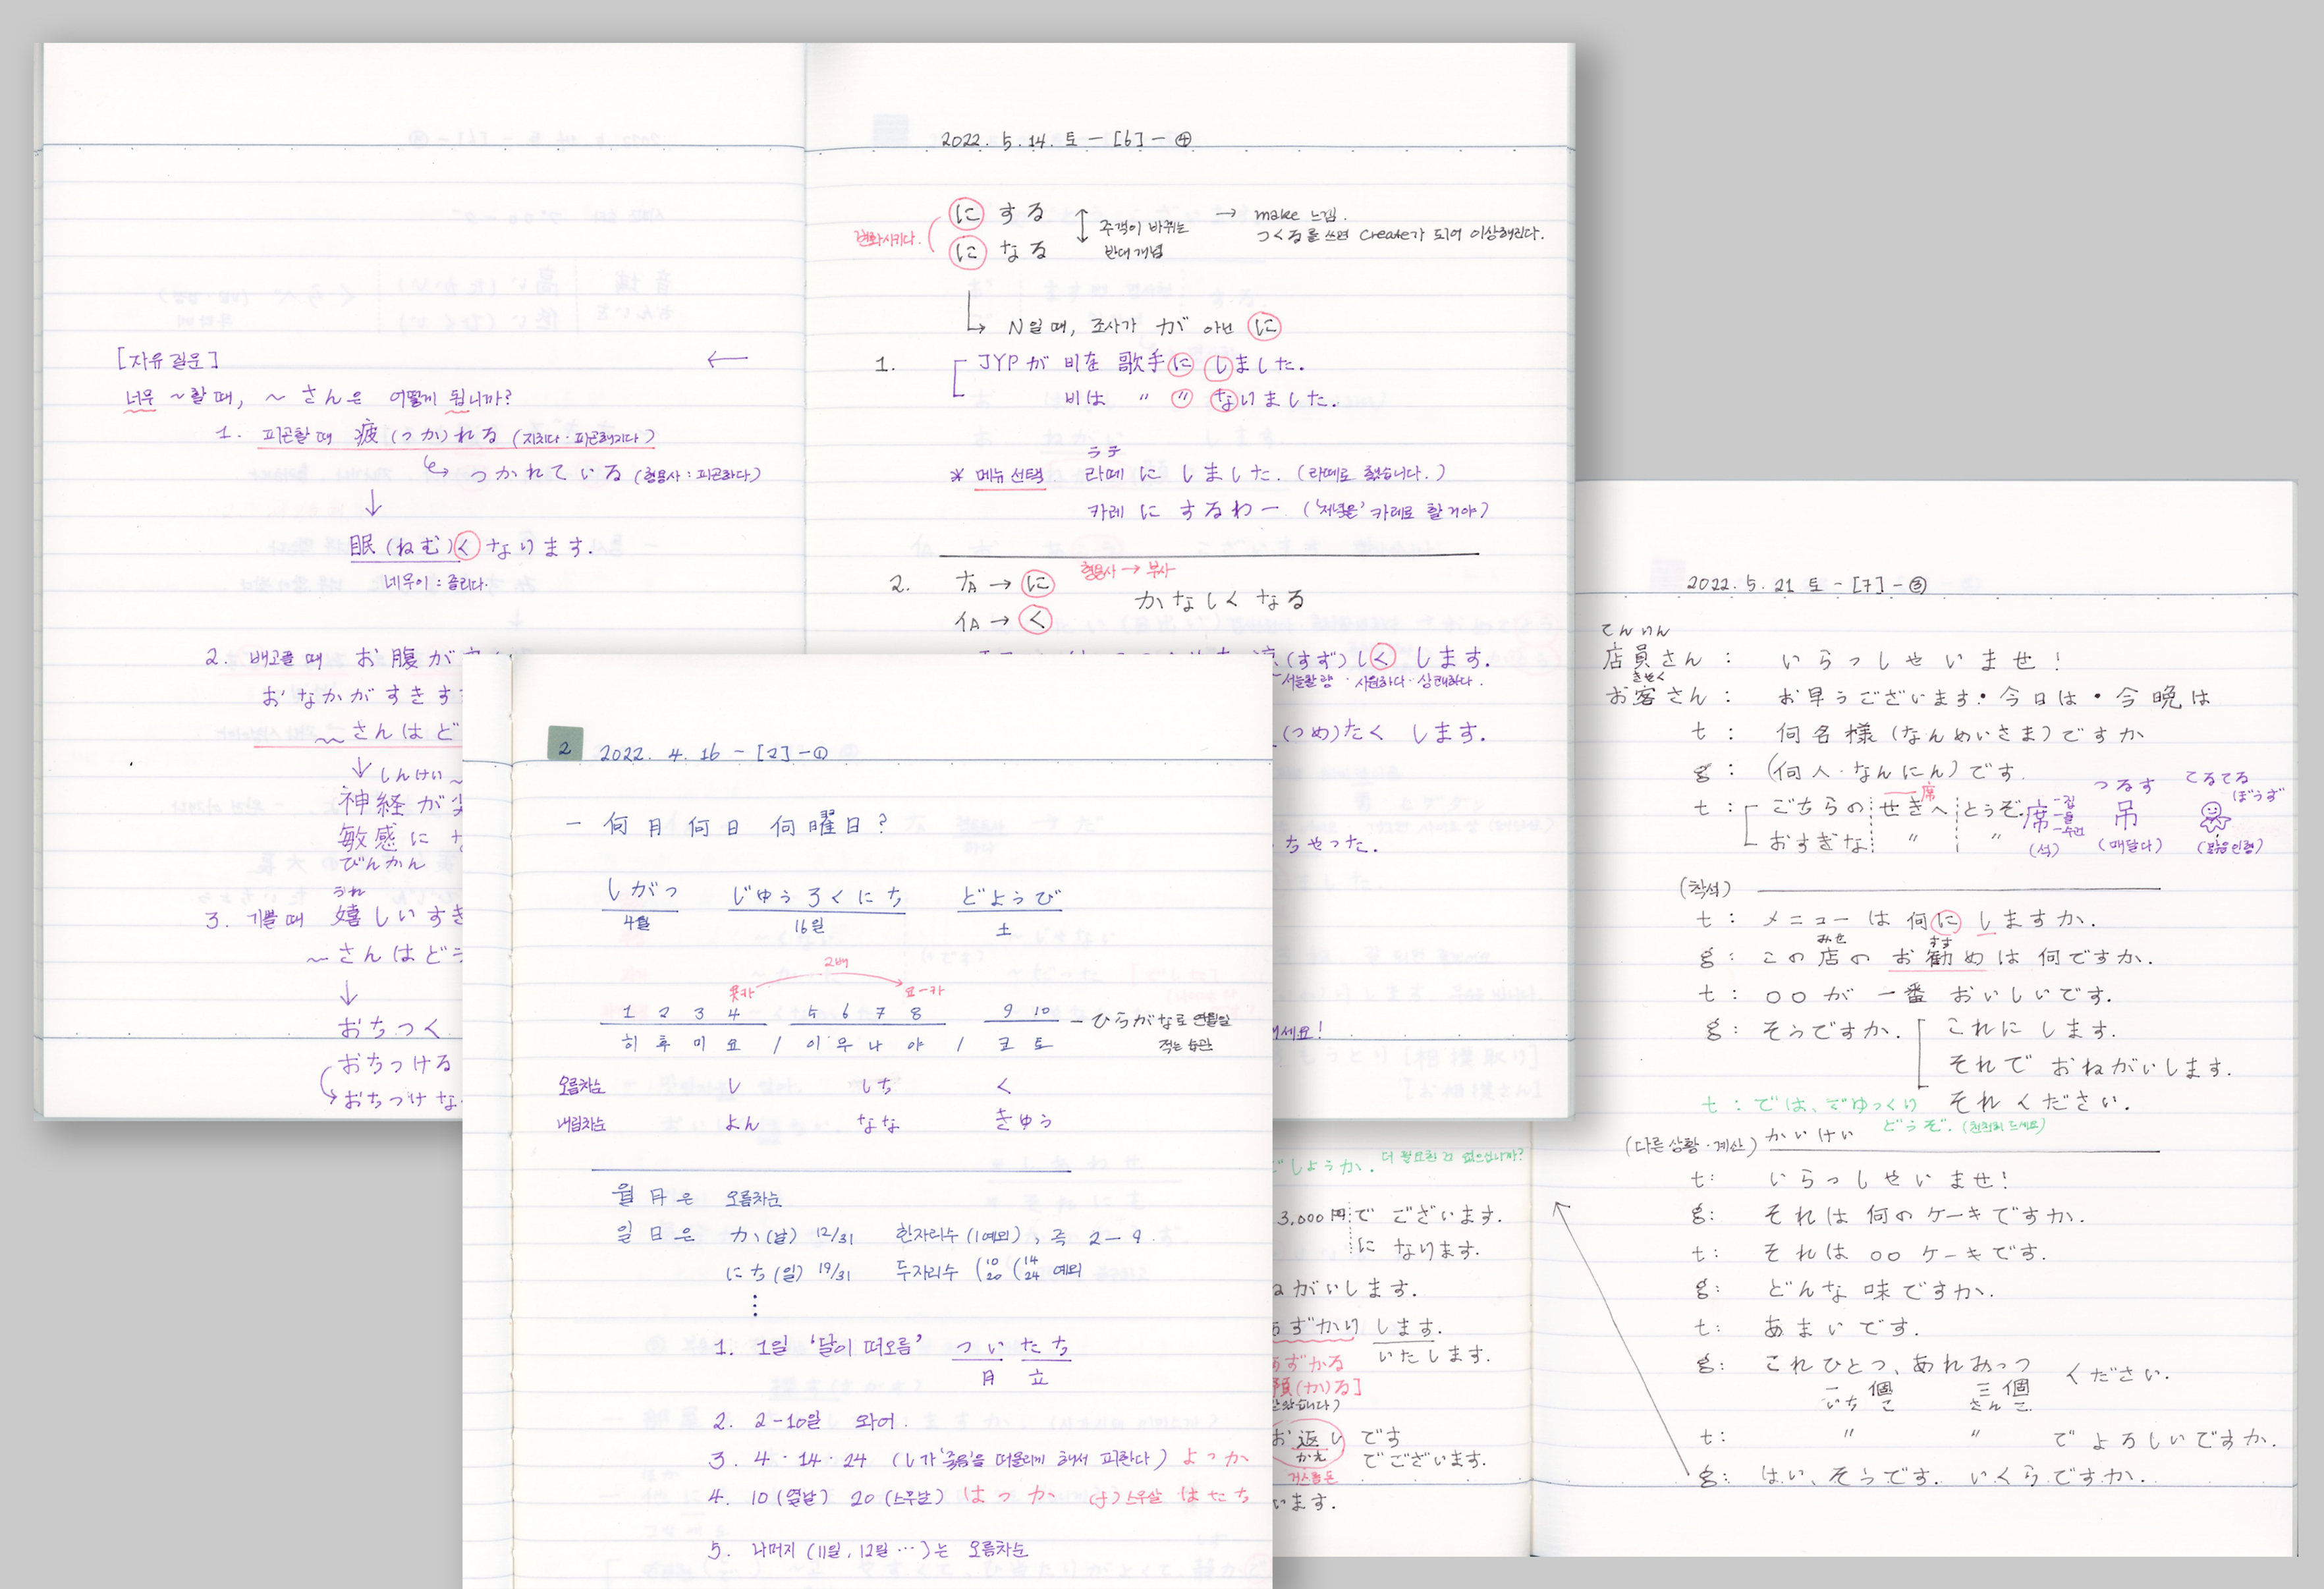 [자유 질문] ←
너무 ~할 때, ~ さん은 어떻게 됩니까?
1. 피곤할 때 疲(つか)れる (지치다·피곤해지다)
つかれている (형용사: 피곤하다)
↓
眠(ねむ)くなります.
네무이: 졸리다.
2. 배고플 때 お腹が
おなかがすきす
~さんはど
↓ しんけい~
神経が
敏感に
びんかん
うれ
3. 기쁠 때 嬉しいすき
~さんはどう
↓
おちつく
おちつける
おちつけな
2022. 5. 14. 토 - [6] - ④
にする
になる
변화시키다.
주객이 바뀌는
반대 개념
→ make 느낌.
つくる를 쓰면 Create가 되어 이상해진다.
N일 때, 조사가 が 아닌 に
1. JYPが 비を 歌手にしました.
비は 〃 〃 なりました.
ラテ
* 메뉴 선택 라떼にしました. (라떼로 했습니다.)
카레にするわー ('저녁은' 카레로 할 거야)
2. ナA → に
イA → く
형용사 → 부사
かなしくなる
(すず)しくします.
서늘할 량 · 시원하다 · 상쾌하다.
(つめ)たくします.
ちゃった.
세요!
2 2022. 4. 16 - [2] - ①
- 何月何日 何曜日?
しがつ じゅうろくにち どようび
4월 16일 土
2배
욧카 요-카
1 2 3 4 5 6 7 8 9 10 - ひらがな로 연월일
히 후 미 요 / 이 무 나 야 / 코 토 적는 습관
오름차순 し しち く
내림차순 よん なな きゅう
월 月은 오름차순
일 日은 か(날) 12/31 한자리수 (1예외), 즉 2-9.
にち(일) 19/31 두자리수 (10 20 (14 24 예외
⋮
1. 1일 '달이 떠오름' ついたち
月 立
2. 2-10일 와어.
3. 4·14·24 (し가 '죽음'을 떠올리게 해서 피한다) よっか
4. 10(열날) 20(스무날) はつか 스무살 はたち
5. 나머지 (11일, 12일…)는 오름차순
でしょうか. 더 필요한 건 없으십니까?
3,000円 でございます.
になります.
ねがいします.
あずかりします.
いたします.
あずかる
預(か)る]
お返しです
かえ
でございます.
거스름돈
います.
2022. 5. 21 토 - [7] - ③
てんいん
店員さん: いらっしゃいませ!
きゃく
お客さん: お早うございます·今日は·今晩は
t: 何名様(なんめいさま)ですか
g: (何人·なんにん)です.
t: こちらの せきへ どうぞ.
席
おすきな 〃 〃
席 -집
(석)
つるす
吊
(매달다)
てるてる
ぼうず
(맑음인형)
(착석)
t: メニューは何にしますか.
みせ すす
g: この店のお勧めは何ですか.
t: ○○が一番おいしいです.
g: そうですか. これにします.
それでおねがいします.
それください.
t: では、ごゆっくり
どうぞ. (천천히 드세요)
(다른 상황·계산) かいけい
t: いらっしゃいませ!
g: それは何のケーキですか.
t: それは○○ケーキです.
g: どんな味ですか.
t: あまいです.
g: これひとつ、あれみっつ ください.
一個 三個
いちこ さんこ
t: 〃 〃 でよろしいですか.
g: はい、そうです. いくらですか.